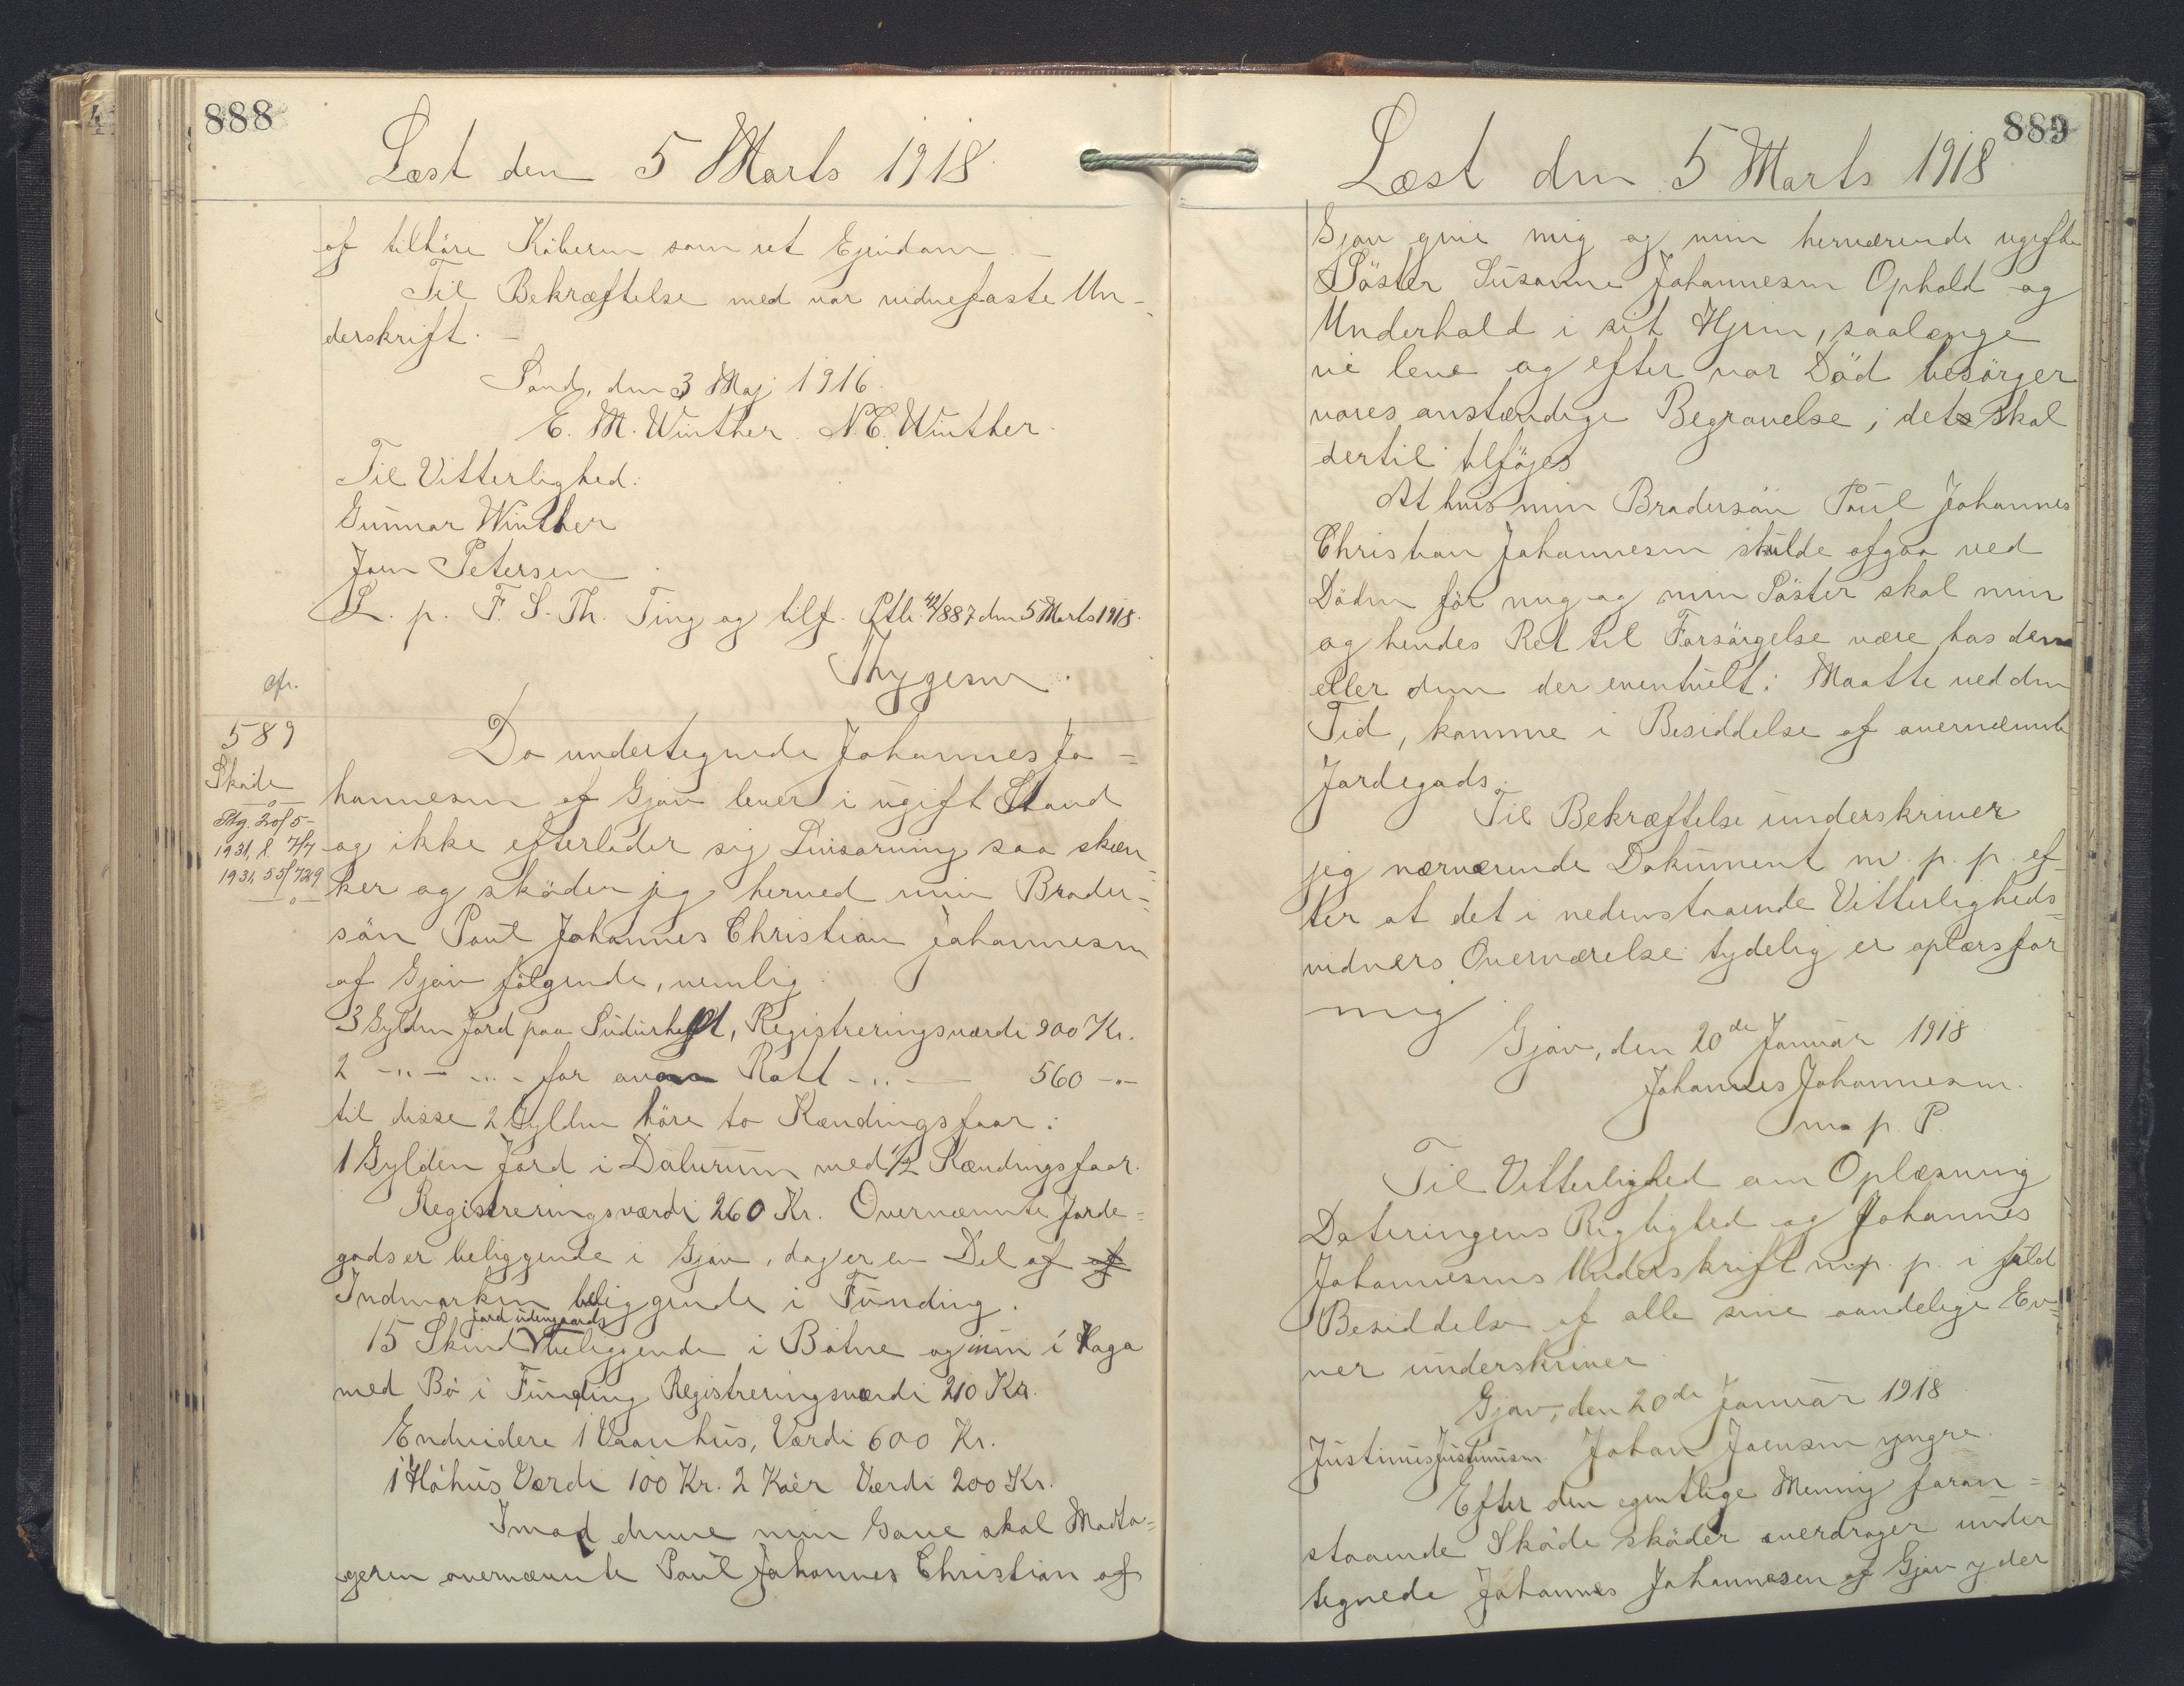 888
Læst den 5 Marts 1918.
af tilhöre Köberen som ret Ejendom. –
Til Bekræftelse med vor vidnefaste Un-
derskrift. –
Sand, den 3 Maj 1916.
E. M. Winther. N.C. Winther.
Til Vitterlighed:
Gunnar Winther
Joen Petersen
L. p. F. S. Th. Ting og tilf. Ptb. 42/887 den 5 Marts 1918.
Thygesen.
cfr.
589
Skøde
Ptg. 20/5-
1931, l. 7/7
1931, 55/729
Da undertegnede Johannes Jo-
hannesen af Gjov lever i ugift Stand
og ikke efterlader sig Livsarving saa skæn-
ker og sköder jeg herved min Broder-
sön Poul Johannes Christian Johannesen
af Gjov fölgende, nemlig:
3 Gylden Jord paa Sudurhelft, Registreringsværdi 900 Kr.
2 -"- -"- for Ratt -"- 560 -"-
til disse 2 Gylden höre to Kændingsfaar:
1 Gylden Jord i Dalurum med 1/2 Kændingsfaar.
Registreringsværdi 260 Kr. Overnævnte Jorde-
gods er beliggende i Gjov, dog er en Del af af
Indmarken beliggende i Funding.
Jord udengaards
15 Skind beliggende i Botne og inni í Haga
med Bö i Funding Registreringsværdi 210 Kr.
Endvidere 1 Vaanhus, Værdi 600 Kr.
1 Höhus Værdi 100 Kr. 2 Köer Værdi 200 Kr.
Imod denne min Gave skal Modta-
geren overnævnte Poul Johannes Christian af
889
Læst den 5 Marts 1918
Gjov give mig og min herværende ugifte
Söster Susanne Johannesen Ophold og
Underhold i sit Hjem, saalænge
vi leve og efter vor Död besörger
vores anstændige Begravelse; det skal
dertil tilföjes
At hvis min Brodersön Poul Johannes
Christian Johannesen skulde afgaa ved
Döden för mig og min Söster skal min
og hendes Ret til Forsörgelse være hos dem
eller den der eventuelt: Maatte ved den
Tid, komme i Besiddelse af overnævnte
Jordegods.
Til Bekræftelse underskriver
jeg nærværende Dokument m. p. p. ef-
ter at det i nedenstaaende Vitterligheds-
vidners Overværelse tydelig er oplæs for
mig
Gjov, den 20de Januar 1918
Johannes Johannesen.
m p. P.
Til Vitterlighed om Oplæsning
Dateringens Rigtighed og Johannes
Johannesens Underskrift m. p. p. i fuld
Besiddelse af alle sine aandelige Ev-
ner underskriver
Gjov, den 20de Januar 1918
Justinus Justinusen. Johan Joensen yngre.
Efter den egentlige Mening foran-
staaende Sköde sköder overdrager under
tegnede Johannes Johannesen af Gjov yder